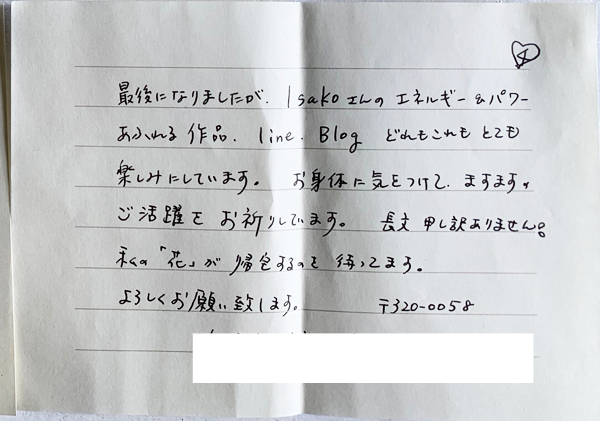 最後になりましたが、Isakoさんのエネルギー&パワー
あふれる作品、line、Blog どれもこれも とても
楽しみにしています。 お身体に気をつけて、ますますの
ご活躍を お祈りしています。 長文 申し訳ありません。
私の「花」が 帰宅するのを 待ってます。
よろしくお願い致します。 〒320-0058